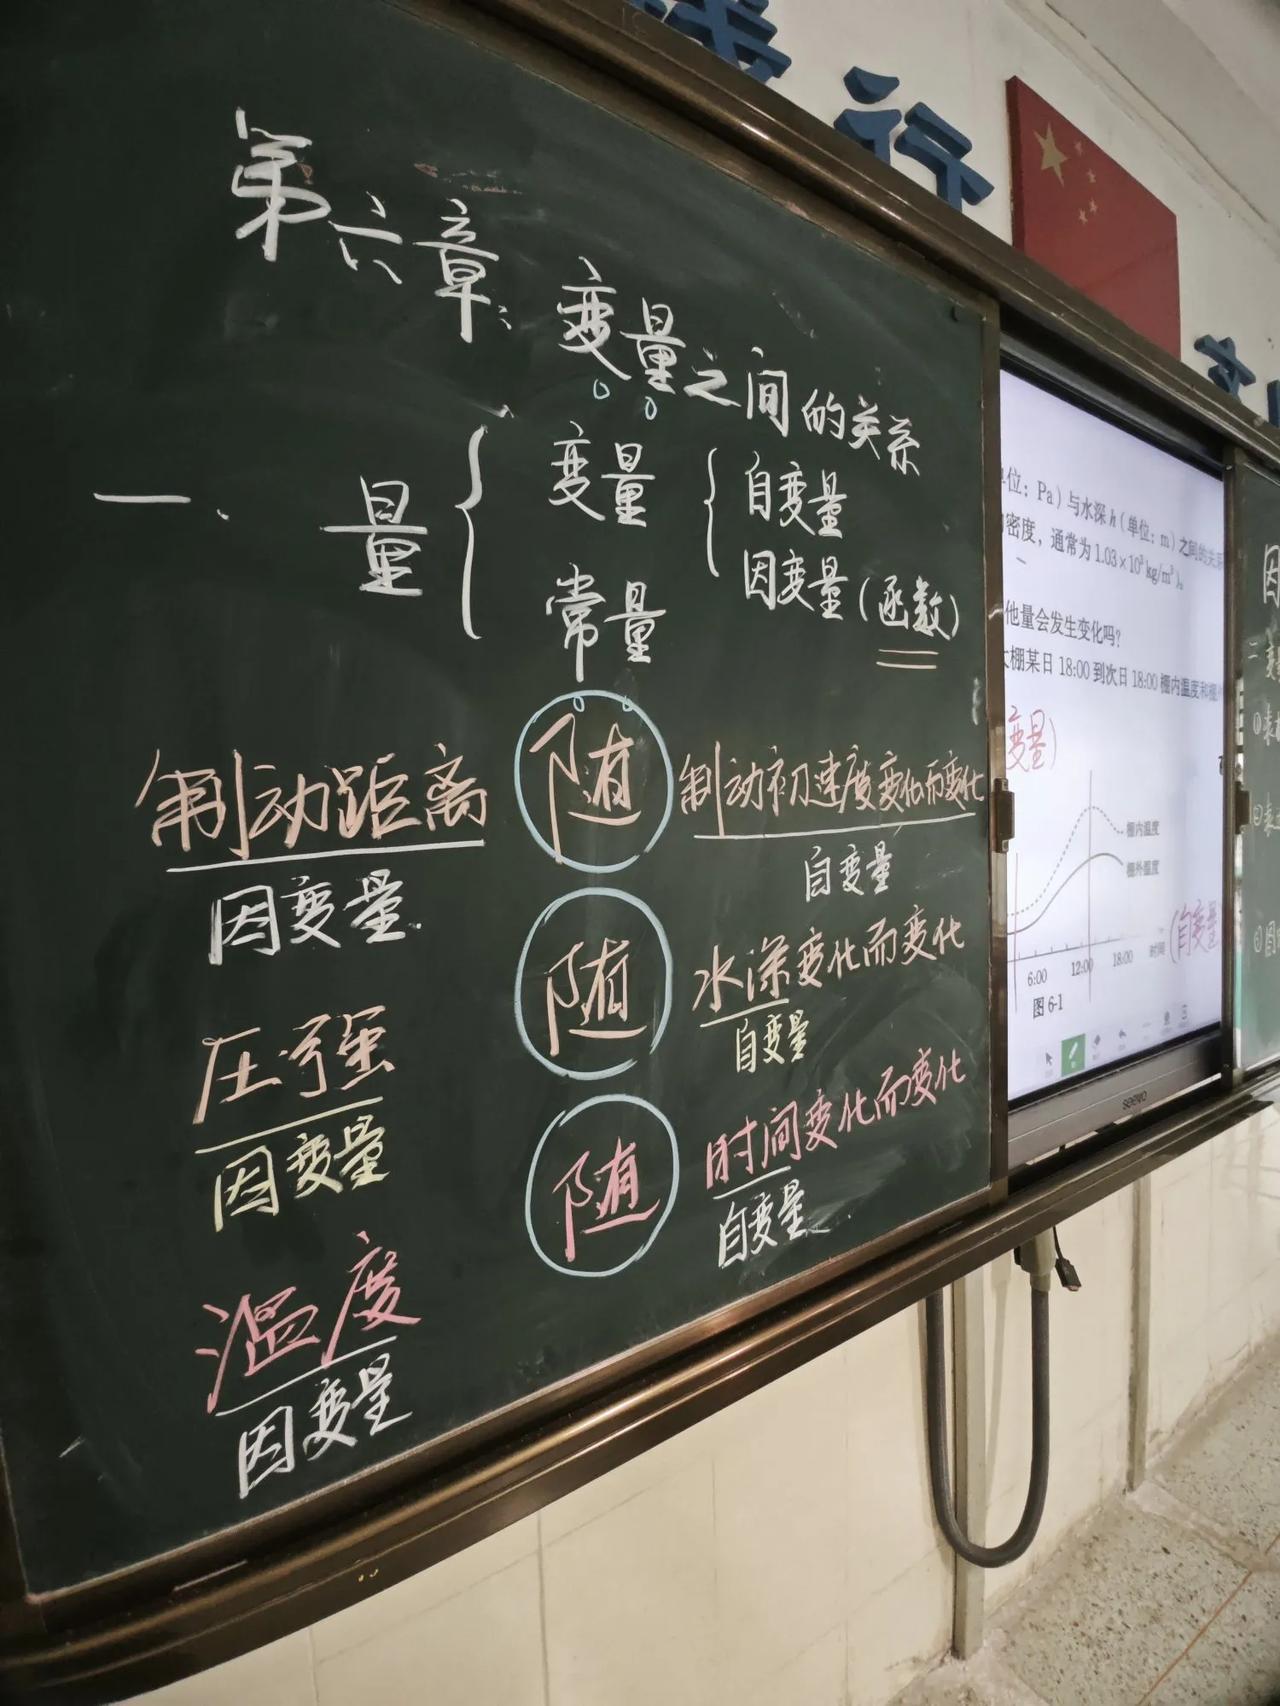 行
第六章:变量之间的关系
一、量
变量
自变量
因变量(函数)
常量
制动距离 随 制动初速度变化而变化
因变量
自变量
压强 随 水深变化而变化
因变量
自变量
温度 随 时间变化而变化
因变量
自变量
位:Pa)与水深h(单位:m)之间的关系
密度,通常为1.03×10³kg/m³)。
他量会发生变化吗?
棚某日18:00到次日18:00棚内温度和棚
变量)
棚内温度
棚外温度
6:00 12:00 18:00 时间
(自变量
图6-1
seewo
因
二